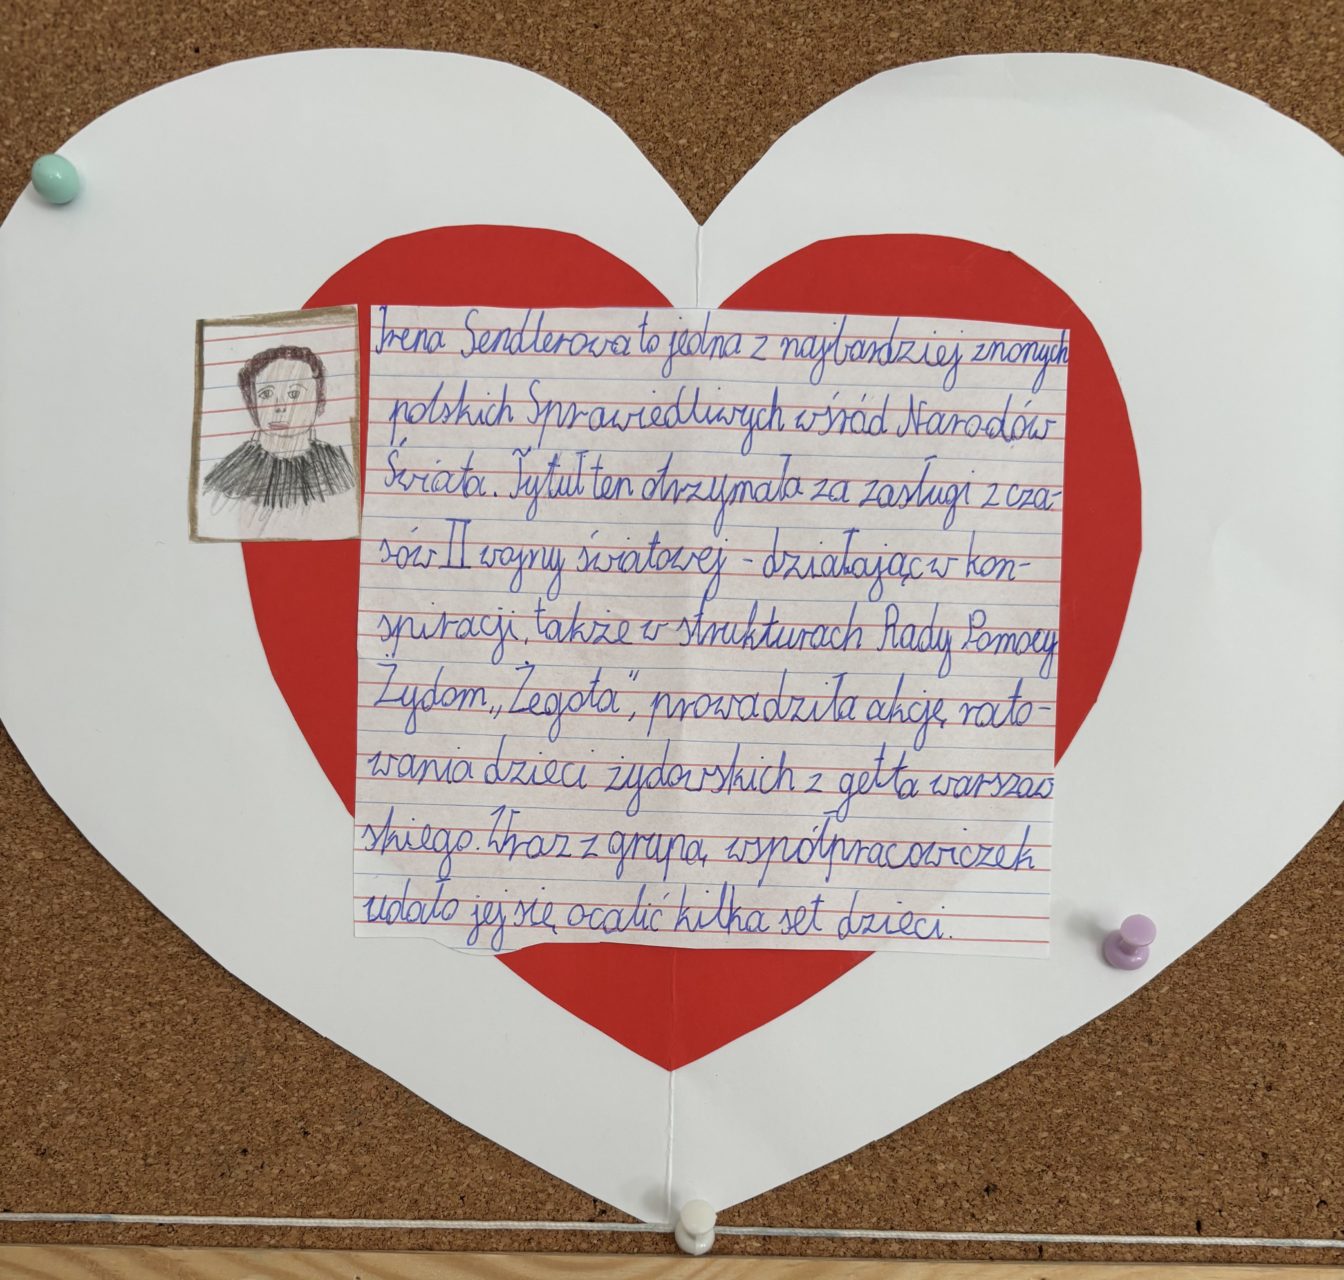 Irena Sendlerowa to jedna z najbardziej znanych
polskich Sprawiedliwych wśród Narodów
Świata. Tytuł ten otrzymała za zasługi z cza-
sów II wojny światowej - działając w kon-
spiracji, także w strukturach Rady Pomocy
Żydom „Żegota”, prowadziła akcję rato-
wania dzieci żydowskich z getta warszaw
skiego. Wraz z grupą współpracowiczek
udało jej się ocalić kilka set dzieci.